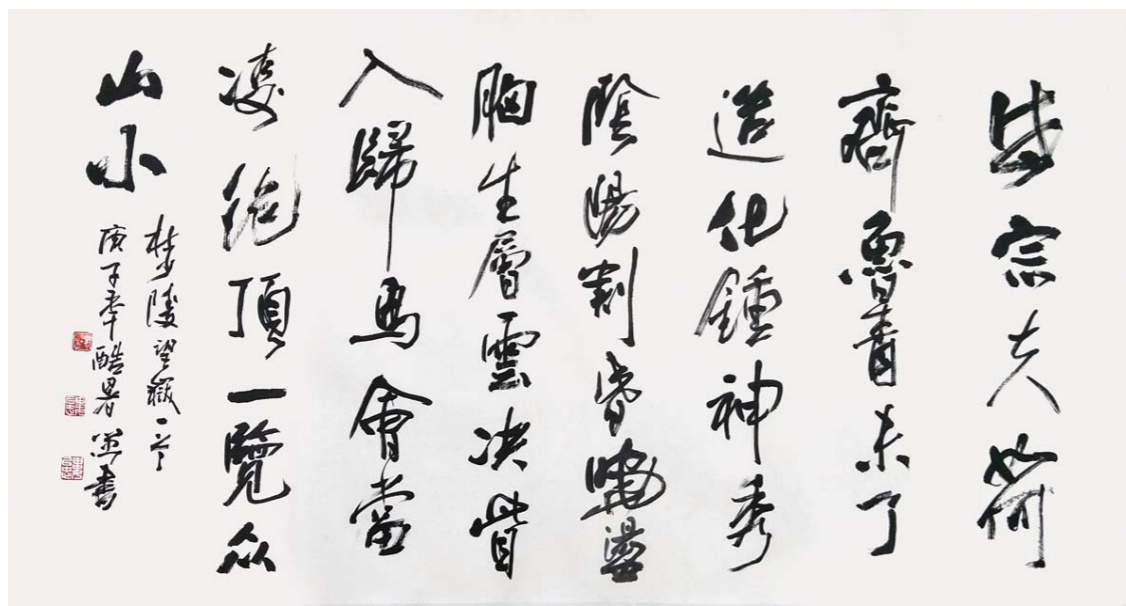 岱宗夫如何
齊魯青未了
造化鍾神秀
陰陽割昏曉盪
胸生層雲决眥
入歸鳥會當
凌絕頂一覽众
山小
杜少陵望嶽一首
庚子年酷暑書